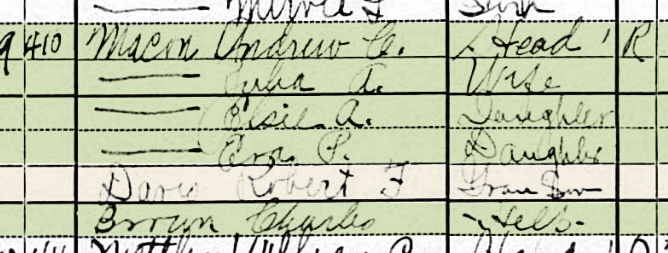 9 410 Macon Andrew C. Head 1 R
—— Julia A. Wife
—— Elsie A. Daughter
—— P. Daughter
Davis Robert F Gran Son
Brown Charles Help